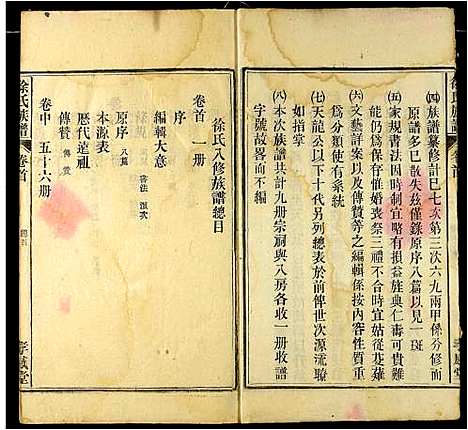 徐氏族譜
㈣族譜纂修計已七次第三次六九兩甲係分修同
譜餘多已散失茲僅錄原序八篇以見一斑
㈤家規書法因時制宜略有損益族典仁壽可貴
能仍為保存惟婚喪祭三禮不合時宜從芟薙
㈥文藝詳案以及傳贊等之編輯係按內容性質重
為分類使有系統
㈦天龍公以下十代另列總表於前俾世次源流瞭
如指掌
㈧本次族譜共計九册宗祠與八房各收一册收譜
字號故畧而不編
徐氏八修族譜總目
卷首 一册
序
編輯大意
原序 八篇
本源表
歷代遠祖
傳贊
卷中 五十六册
徐氏族譜
卷首